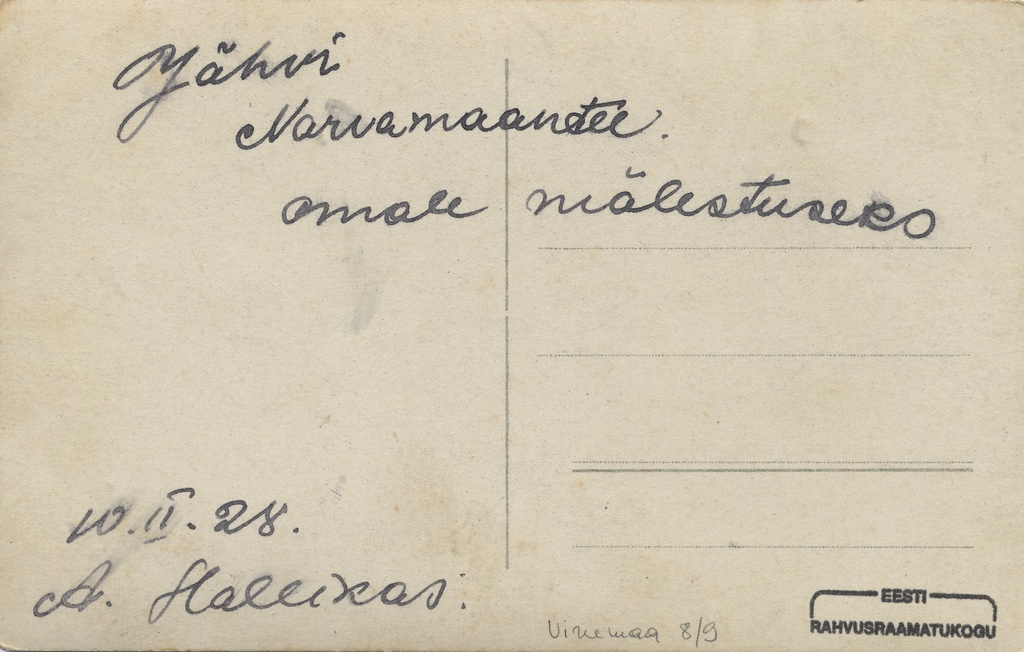 Jähvi
Narvamaantee.
omale mälestuseks
10.II.28.
A. Hallikas.
Virumaa 8/9
EESTI
RAHVUSRAAMATUKOGU